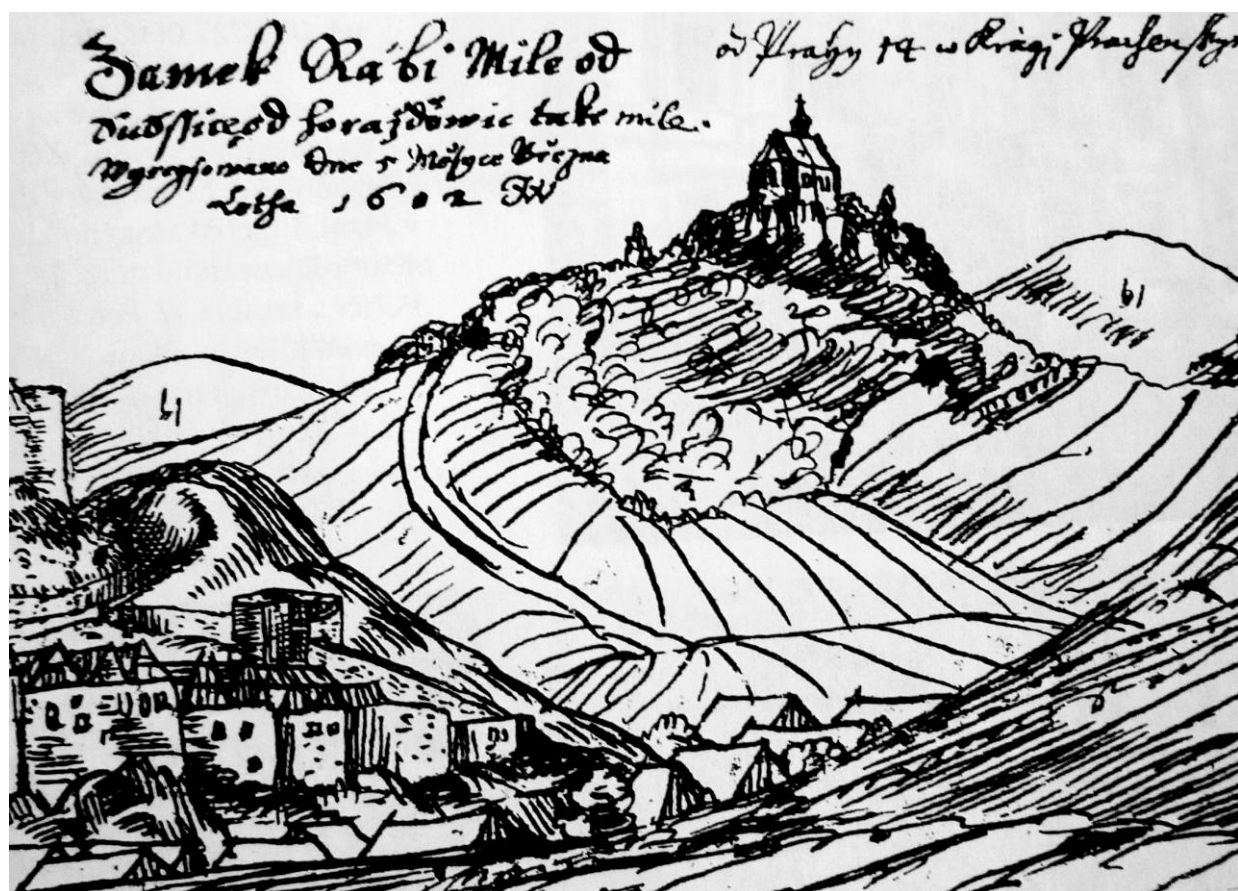 Zamek Rábi Mile od
Sussice od Horaždowic take mile.
Wyregsowano dne 5 Měsyce Března
Letha 1602 JW
od Prahy 14 w Kragi Prachenskym